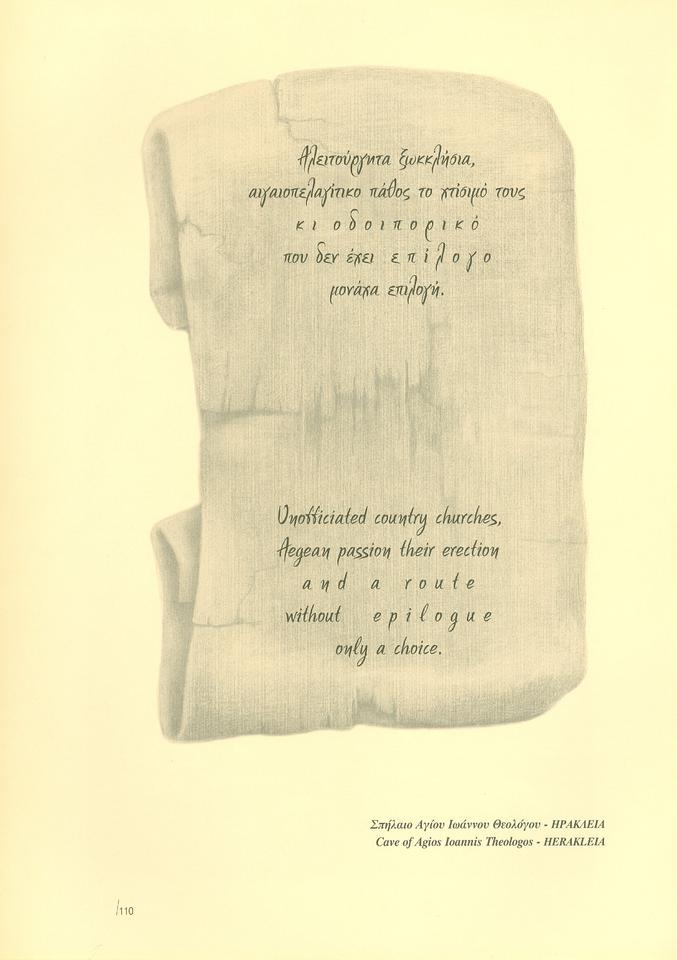 Αλειτούργητα ξωκκλήσια,
αιγαιοπελαγίτικο πάθος το χτίσιμό τους
κι οδοιπορικό
που δεν έχει επίλογο
μονάχα επιλογή.
Unofficiated country churches,
Aegean passion their erection
and a route
without epilogue
only a choice.
Σπήλαιο Αγίου Ιωάννου Θεολόγου - ΗΡΑΚΛΕΙΑ
Cave of Agios Ioannis Theologos - HERAKLEIA
/110